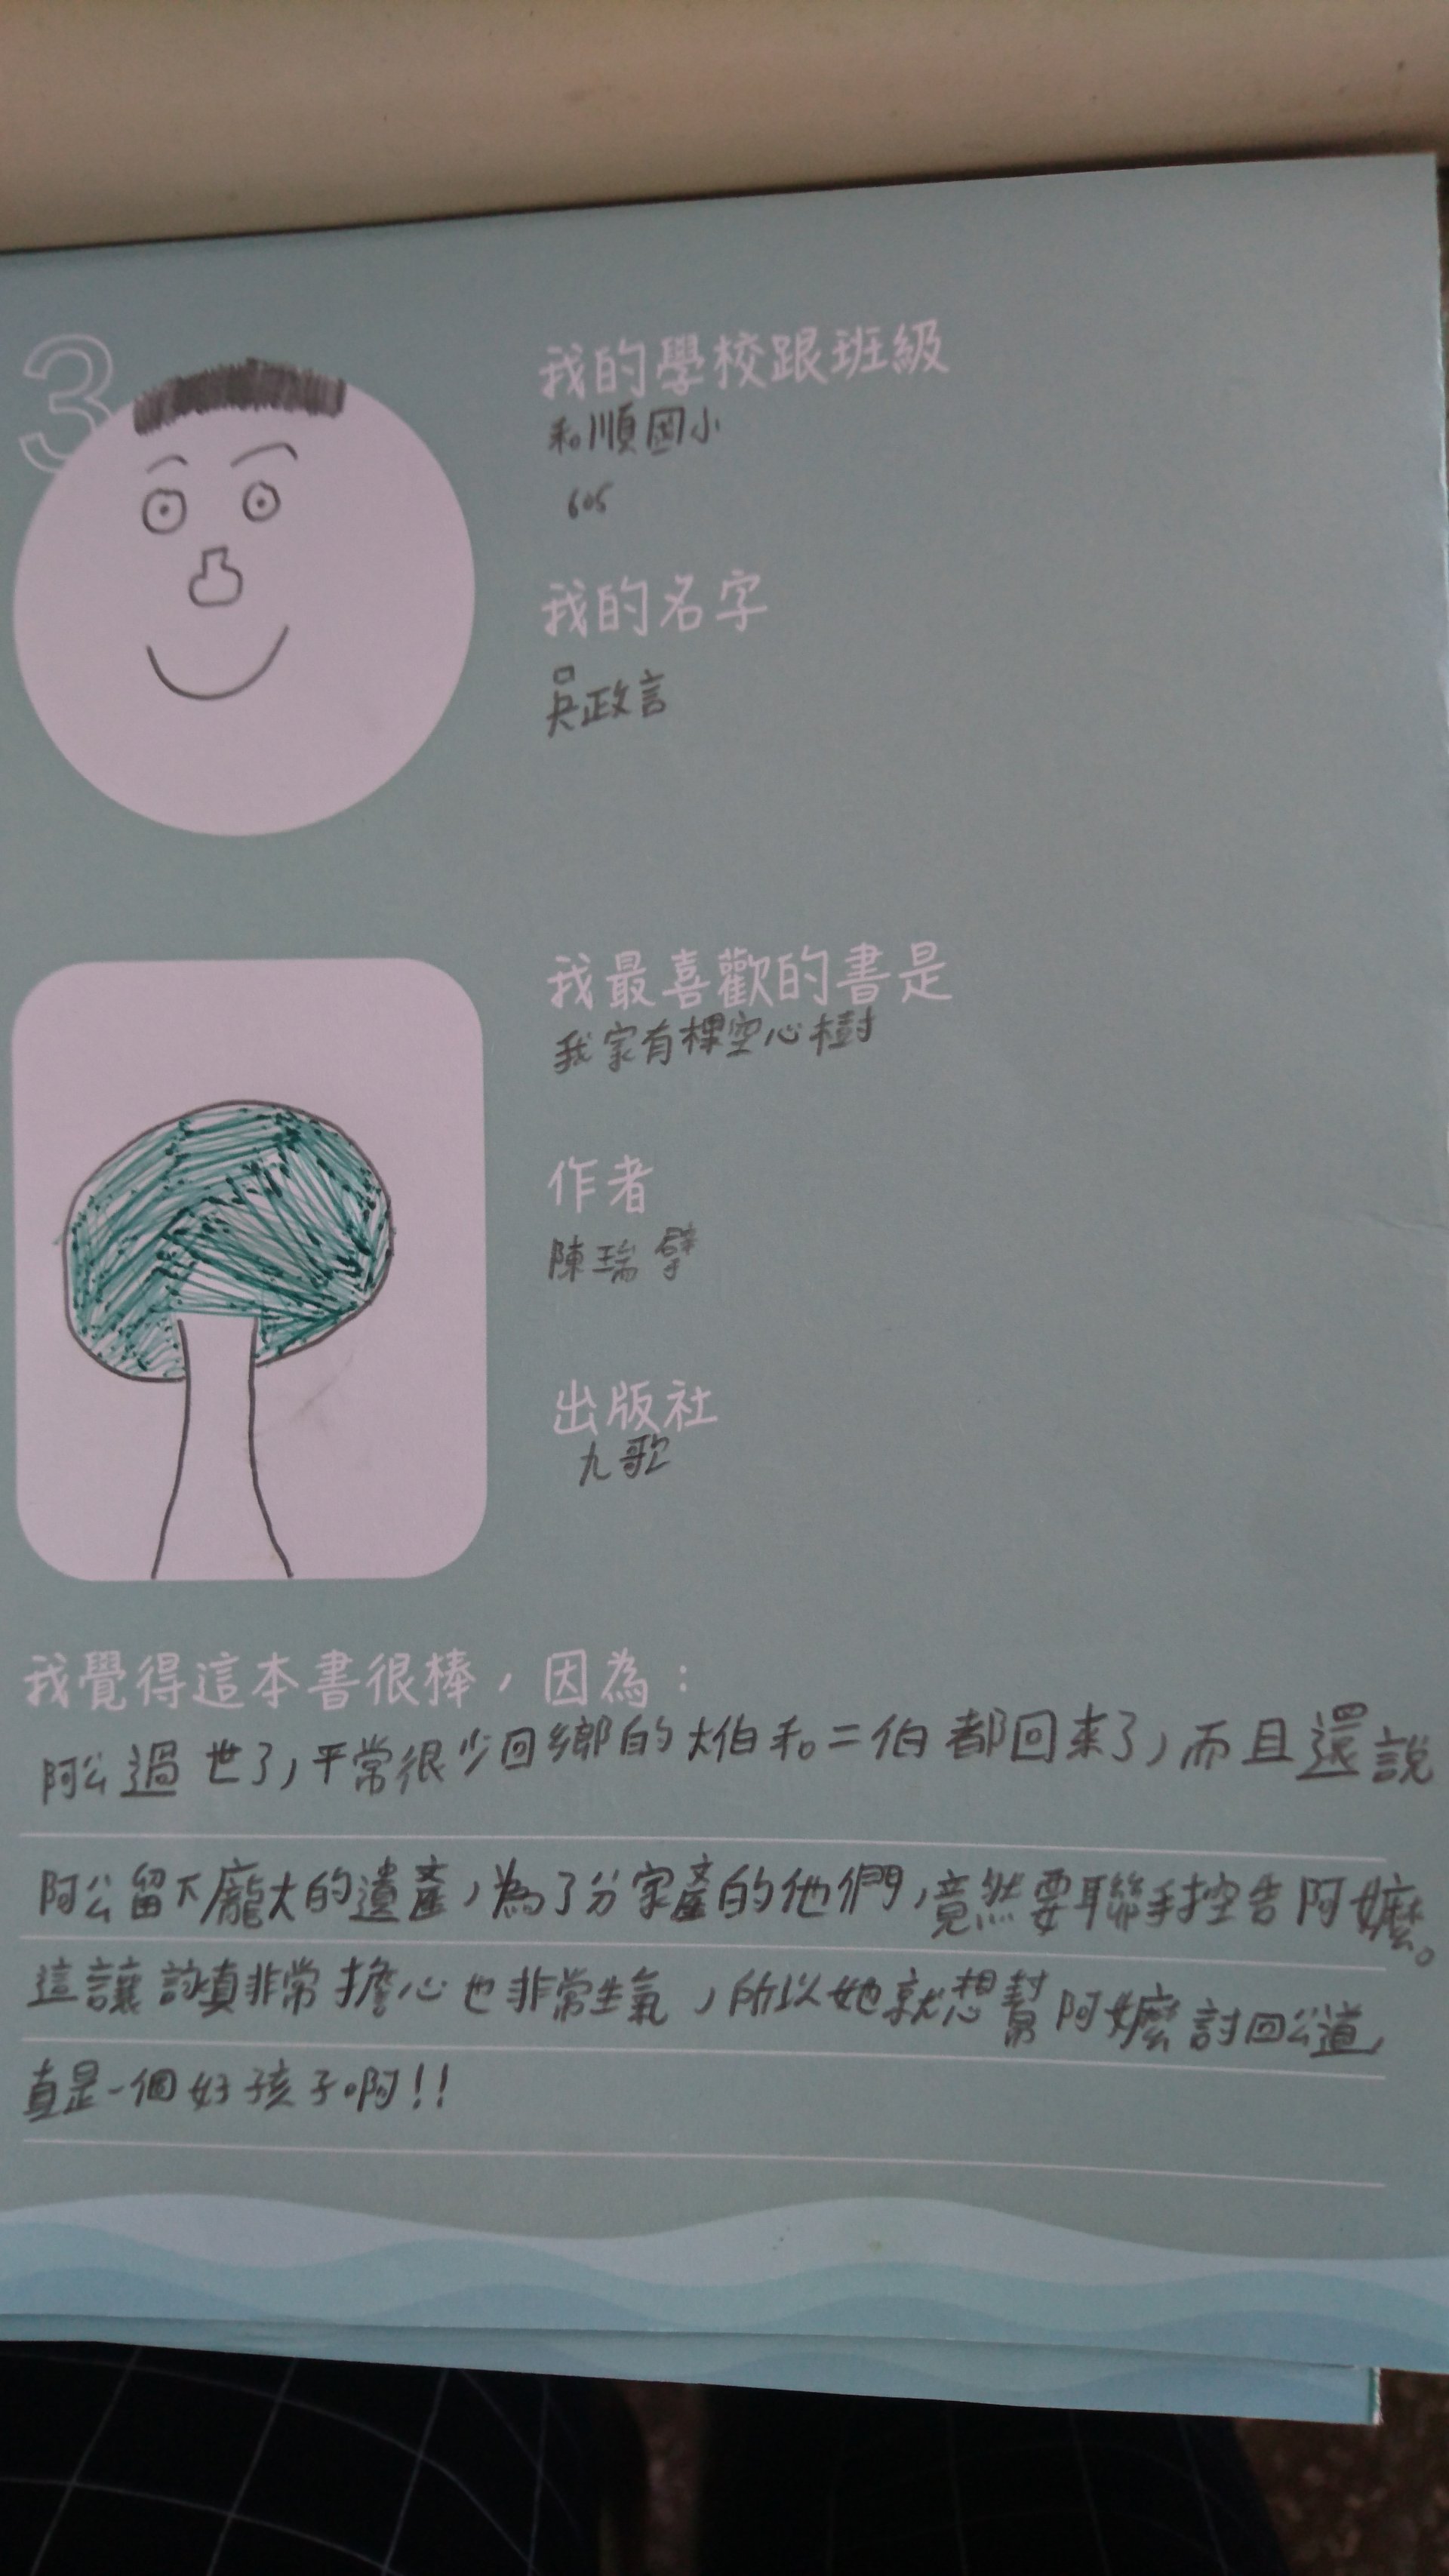 3
我的學校跟班級
和順國小
605
我的名字
吳政言
我最喜歡的書是
我家有棵空心樹
作者
陳瑞
出版社
九歌
我覺得這本書很棒，因為：
阿公過世了，平常很少回鄉的大伯和二伯都回來了，而且還說
阿公留下龐大的遺產，為了分家產的他們，竟然要聯手控告阿嬤。
這讓詠真非常擔心也非常生氣，所以她就想幫阿嬤討回公道，
真是一個好孩子啊!!